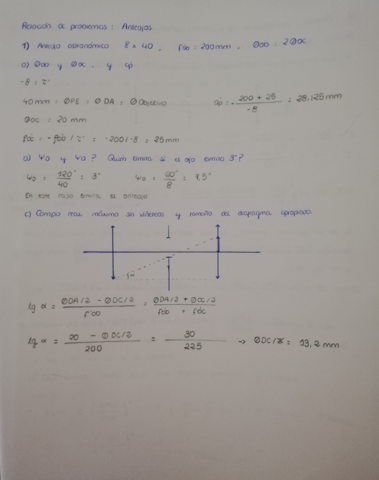 Relación de problemas: Anteojos
1) Anteojo astronómico 8 x 40, f'ob = 200mm, Øob = 2Øoc
a) Øob y Øoc, y cp
-8 = τ'
40 mm = ØPE = ØDA = Øobjetivo
cp = - 200 + 25 / -8 = 28.125 mm
Øoc = 20 mm
f'oc = - f'ob / τ' = -200/-8 = 25 mm
b) ψo y ψo? Quién limita si el ojo limita 3°?
ψo = 120° / 40 = 3°
ψo = 60° / 8 = 7,5°
En este caso limita el anteojo
c) Campo real máximo sin viñeteo y tamaño del diafragma apropiado
tg α = ØDA/2 - ØDC/2 / f'ob = ØDA/2 + Øoc/2 / f'ob + f'oc
tg α = 20 - ØDC/2 / 200 = 30 / 225 → ØDC/2 = 13,2 mm